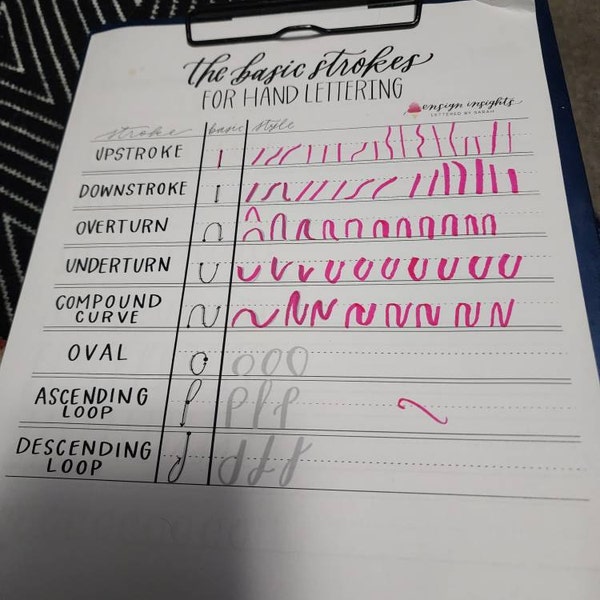 the basic strokes
FOR HAND LETTERING
ensign insights
LETTERED BY SARAH
stroke basic style
UPSTROKE
DOWNSTROKE
OVERTURN
UNDERTURN
COMPOUND
CURVE
OVAL
ASCENDING
LOOP
DESCENDING
LOOP